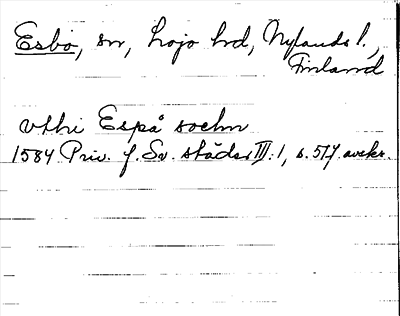 Esbo, sn, Lojo hd, Nylands l.,
Finland
vthi Espå sochn
1584 Priv. f. Sv. städer III:1, s. 517 avskr.